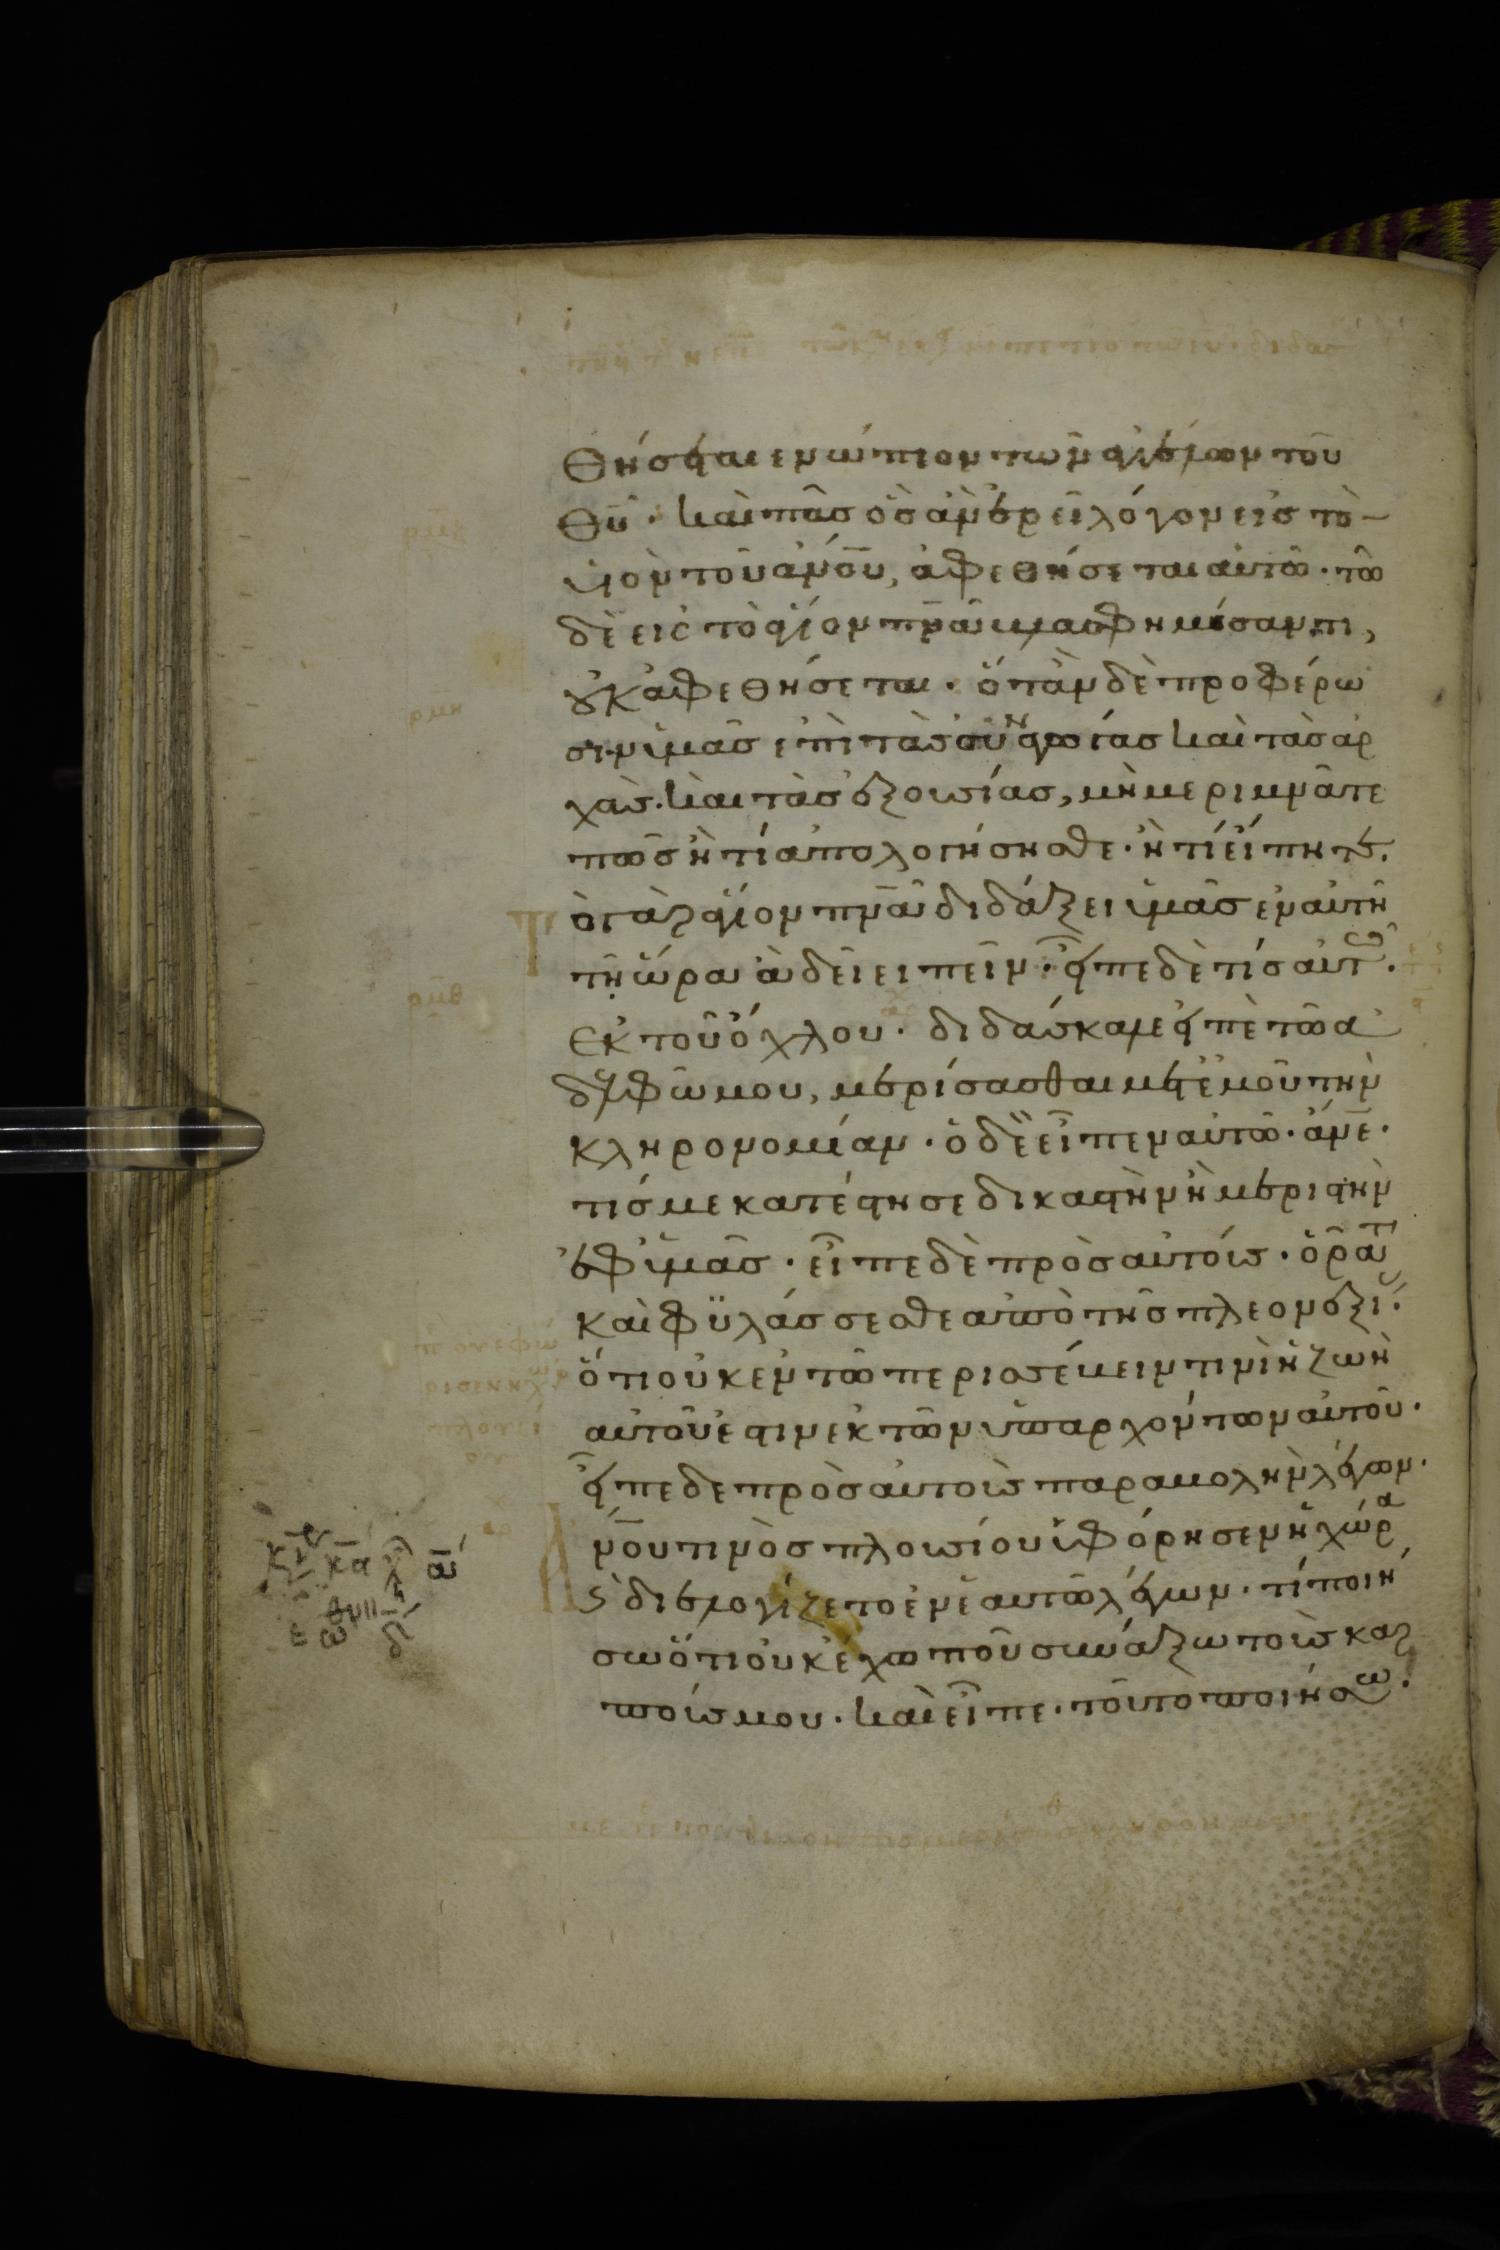 θήσεται ενώπιον τῶν ἀγγέλων τοῦ
θῦ · καὶ πᾶσ ὃσ ἂν ἐρεῖ λόγον εἰσ τὸ
υἱὸν τοῦ ἀνοῦ, ἀφεθήσεται αὐτῶ · τῶ
δὲ εἰσ τὸ ἅγιον πνᾶ βλασφημήσαντι,
οὐκ ἀφεθήσεται · ὅτὰν δὲ προφέρω
σιν ὑμᾶσ ἐπὶ τὰσ συναγωγάσ καὶ τὰσ ἀρ
χὰσ · καὶ τὰσ ἐξουσίασ, μὴ μεριμνᾶτε
πῶσ ἢ τί ἀπολογήσησθε · ἢ τί εἴπητε.
τὸ γὰρ ἅγιον πνᾶ διδάξει ὑμᾶσ ἐν αὐτῆ
τῆ ὥρα ἃ δεῖ ειπεῖν · εἶπε δὲ τίσ αὐτῶ ·
ἐκ τοῦ ὄχλου · διδάσκαλε εἰπὲ τῶ ἀ
δελφῶ μου, μερίσασθαι μετ ἐμοῦ τὴν
κληρονομίαν · ὁ δὲ εἶπεν αὐτῶ · ἄνε ·
τίσ με κατέστησε δικαστὴν ἢ μεριστὴν
ἐφ ὑμᾶσ · εἶπε δὲ πρὸσ αὐτούσ · ὁρᾶτ
καὶ φϋλάσσεσθε ἀπὸ τῆσ πλεονεξί ·
ὅτι οὐκ ἐν τῶ περισσεύειν τινὶ ἡ ζωὴ
αὐτοῦ ἐστιν ἐκ τῶν ὑπαρχόντων αὐτοῦ ·
εἶπε δε πρὸσ αυτοὺσ παραβολὴν λέγων ·
ἀνου τινὸσ πλουσίου εὐφόρησεν ἡ χώρα
ϛ διελογίζετο ἐν ἑαυτῶ λέγων · τί ποιή
σω ὅτι οὐκ ἔχω ποῦ συνάξω τοὺσ καρ
πούσ μου · καὶ εἶπε · τοῦτο ποιήσω ·